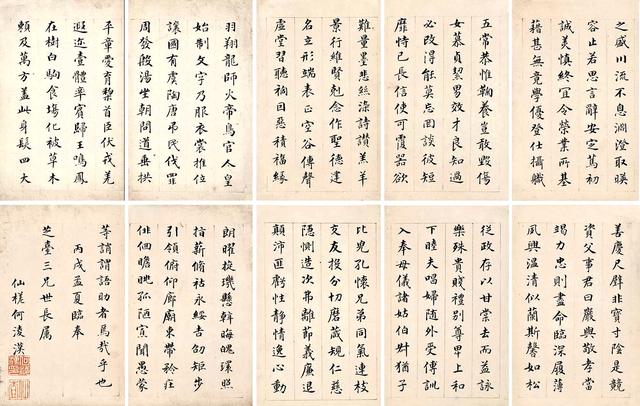 羽翔龍師火帝鳥官人皇
始制文字乃服衣裳推位
讓國有虞陶唐弔民伐罪
周發殷湯坐朝問道垂拱
平章愛育黎首臣伏戎羌
遐邇壹體率賓歸王鳴鳳
在樹白駒食場化被草木
賴及萬方蓋此身髮四大
五常恭惟鞠養豈敢毀傷
女慕貞絜男效才良知過
必改得能莫忘罔談彼短
靡恃己長信使可覆器欲
難量墨悲絲染詩讚羔羊
景行維賢剋念作聖德建
名立形端表正空谷傳聲
虛堂習聽禍因惡積福緣
善慶尺璧非寶寸陰是競
資父事君曰嚴與敬孝當
竭力忠則盡命臨深履薄
夙興溫凊似蘭斯馨如松
之盛川流不息淵澄取暎
容止若思言辭安定篤初
誠美慎終宜令榮業所基
藉甚無竟學優登仕攝職
從政存以甘棠去而益詠
樂殊貴賤禮別尊卑上和
下睦夫唱婦隨外受傅訓
入奉母儀諸姑伯叔猶子
比兒孔懷兄弟同氣連枝
交友投分切磨箴規仁慈
隱惻造次弗離節義廉退
顛沛匪虧性靜情逸心動
朗曜旋璣懸斡晦魄環照
指薪脩祜永綏吉劭矩步
引領俯仰廊廟束帶矜莊
俳佪瞻眺孤陋寡聞愚蒙
等誚謂語助者焉哉乎也
丙戌孟夏臨奉
芝臺三兄世長屬
仙槎何淩漢